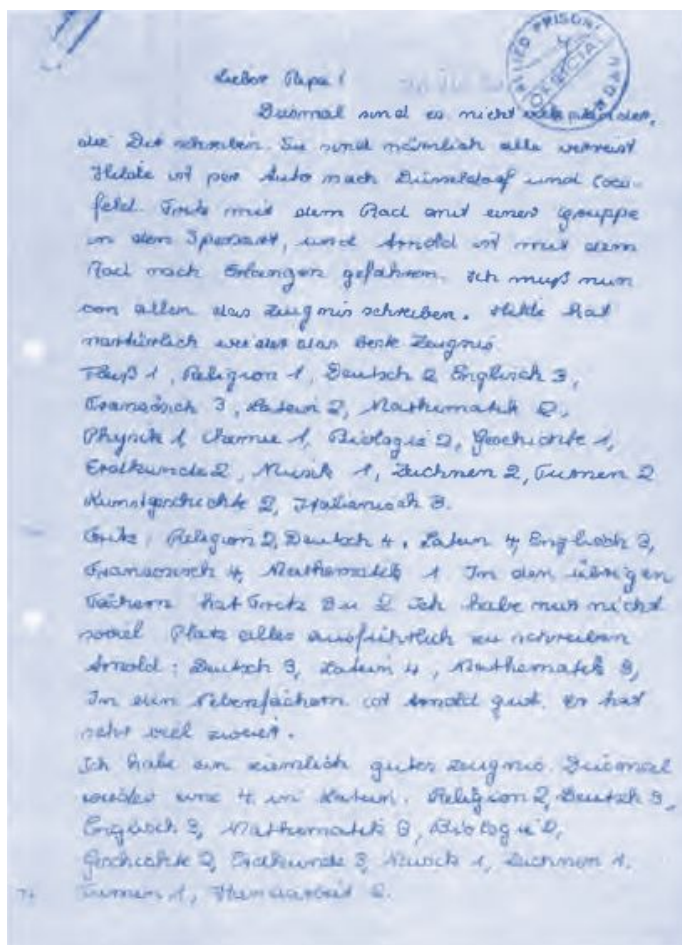 ALLIED PRISON
Lieber Papa!
Diesmal sind es nicht
die Dir schreiben. Sie sind nämlich alle verreist
Hilde ist per Auto nach Düsseldorf und Coes-
feld. Fritz mit dem Rad mit einer Gruppe
in den Spessart, und Arnold ist mit dem
Rad nach Erlangen gefahren. Ich muß nun
von allen das Zeugnis schreiben. Hilde hat
natürlich wieder das beste Zeugnis
Fleiß 1, Religion 1, Deutsch 2 Englisch 3,
Französisch 3, Latein 2, Mathematik 2,
Physik 1 Chemie 1, Biologie 2, Geschichte 1,
Erdkunde 2, Musik 1, Zeichnen 2, Turnen 2
Kunstgeschichte 2, Italienisch 3.
Fritz: Religion 2, Deutsch 4, Latein 4, Englisch 3,
Französisch 4, Mathematik 1 In den übrigen
Fächern hat Fritz 3 u 2 Ich habe nur nicht
soviel Platz alles ausführlich zu schreiben
Arnold: Deutsch 3, Latein 4, Mathematik 3,
In den Nebenfächern ist Arnold gut. Er hat
sehr viel zweier.
Ich habe ein ziemlich gutes Zeugnis. Diesmal
wieder eine 4 in Latein. Religion 2, Deutsch 3,
Englisch 3, Mathematik 3, Biologie 2,
Geschichte 2, Erdkunde 3, Musik 1, Zeichnen 1.
Turnen 1, Handarbeit 2.